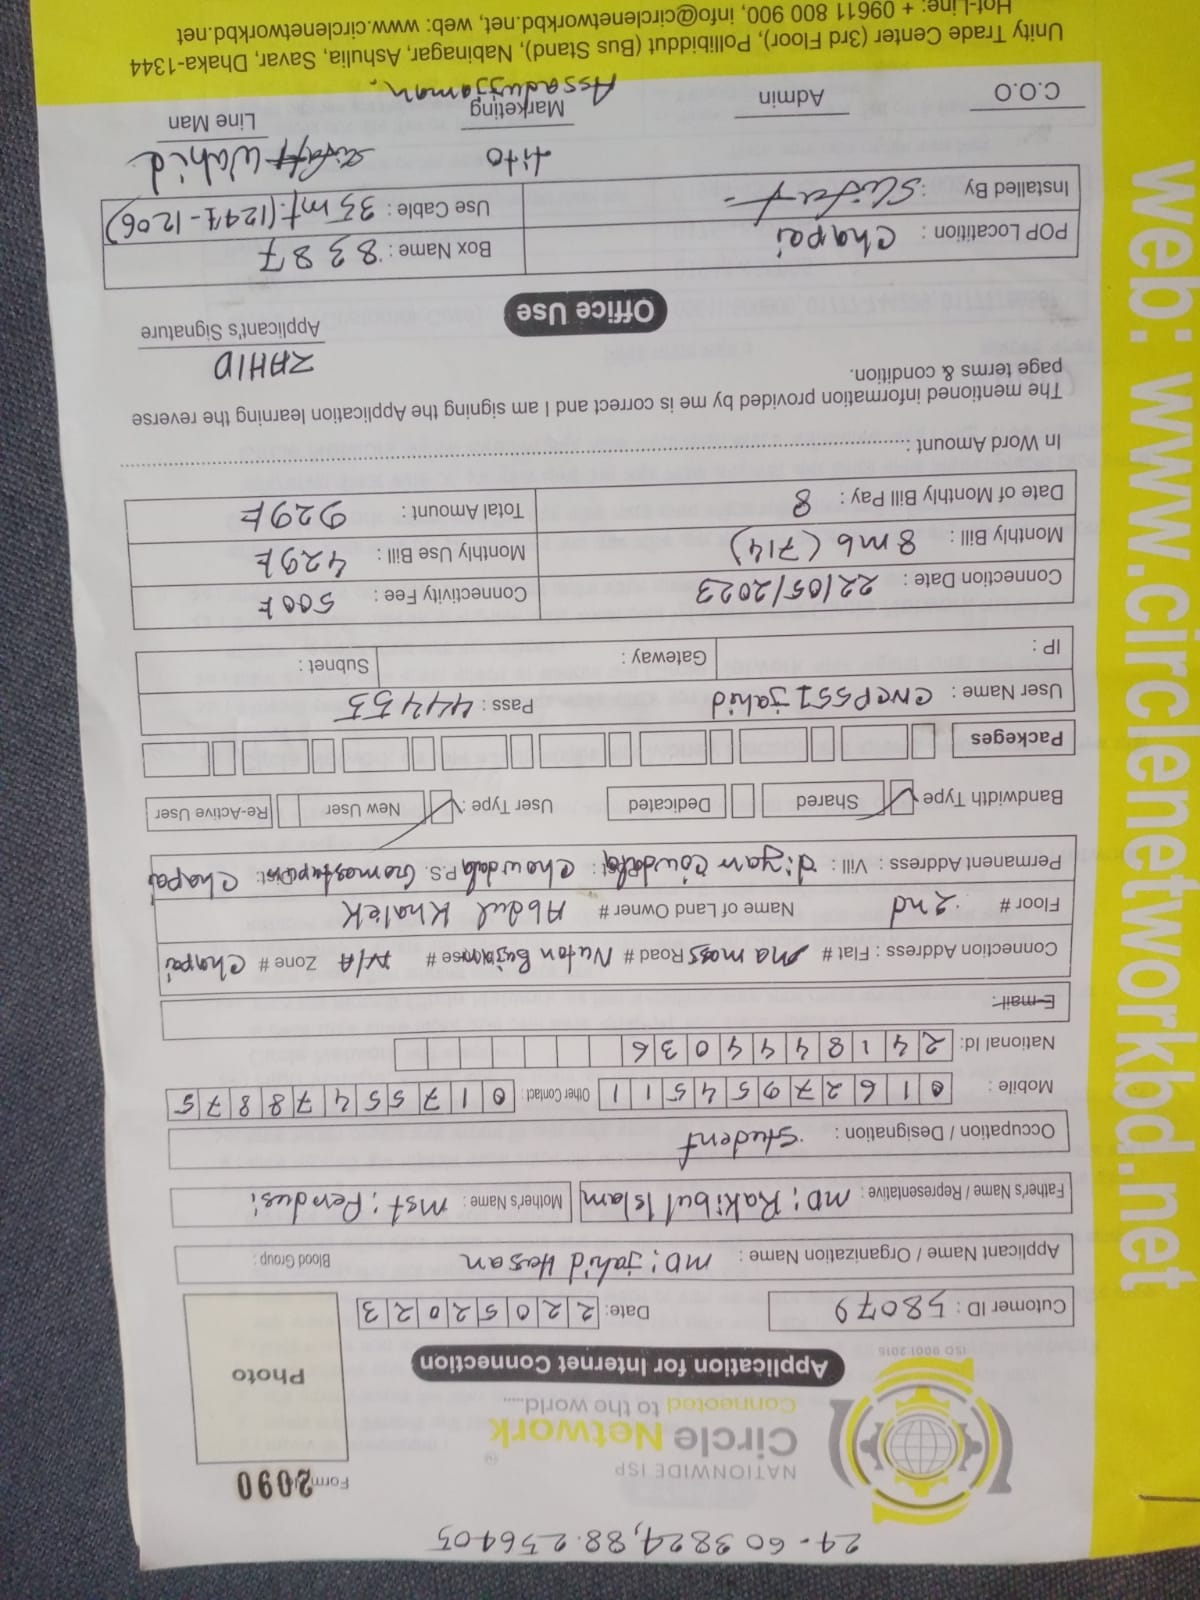 24.603824, 88.256405
NATIONWIDE ISP
Circle Network
Connected to the world......
ISO 9001:2015
Form No 2090
Photo
Application for Internet Connection
Cutomer ID : 58079 Date: 22052023
Applicant Name / Organization Name : MD: jahid Hesan Blood Group :
Father's Name / Representative : MD: Rakibul Islam Mother's Name : Mst: Ferdusi
Occupation / Designation : Student
Mobile : 01627954511 Other Contact : 01755478875
National Id: 2418444036
E-mail :
Connection Address : Flat # ma moss Road # Nuton Bujar House # N/A Zone # Chapai
Floor # 2nd Name of Land Owner # Abdul Khalek
Permanent Address : Vill : dijam Cowdala Post : Chowdala P.S. Gomastupur Dist : Chapai
Bandwidth Type Shared Dedicated User Type : New User Re-Active User
Packeges
User Name : CNCP551jahid Pass : 44455
IP : Gateway : Subnet :
Connection Date : 22/05/2023 Connectivity Fee : 500৳
Monthly Bill : 8mb (714) Monthly Use Bill : 429৳
Date of Monthly Bill Pay : 8 Total Amount : 929৳
In Word Amount :
The mentioned information provided by me is correct and I am signing the Application learning the reverse
page terms & condition.
ZAHID
Applicant's Signature
Office Use
POP Locatition : Chapai Box Name : 8387
Installed By : Sifat Use Cable : 35 mt. (1241-1206)
tito Sifat Wahid
C.O.O Admin Marketing Line Man
Assaduzjaman.
Unity Trade Center (3rd Floor), Pollibiddut (Bus Stand), Nabinagar, Ashulia, Savar, Dhaka-1344
Hot-Line: + 09611 800 900, info@circlenetworkbd.net, web: www.circlenetworkbd.net
web: www.circlenetworkbd.net